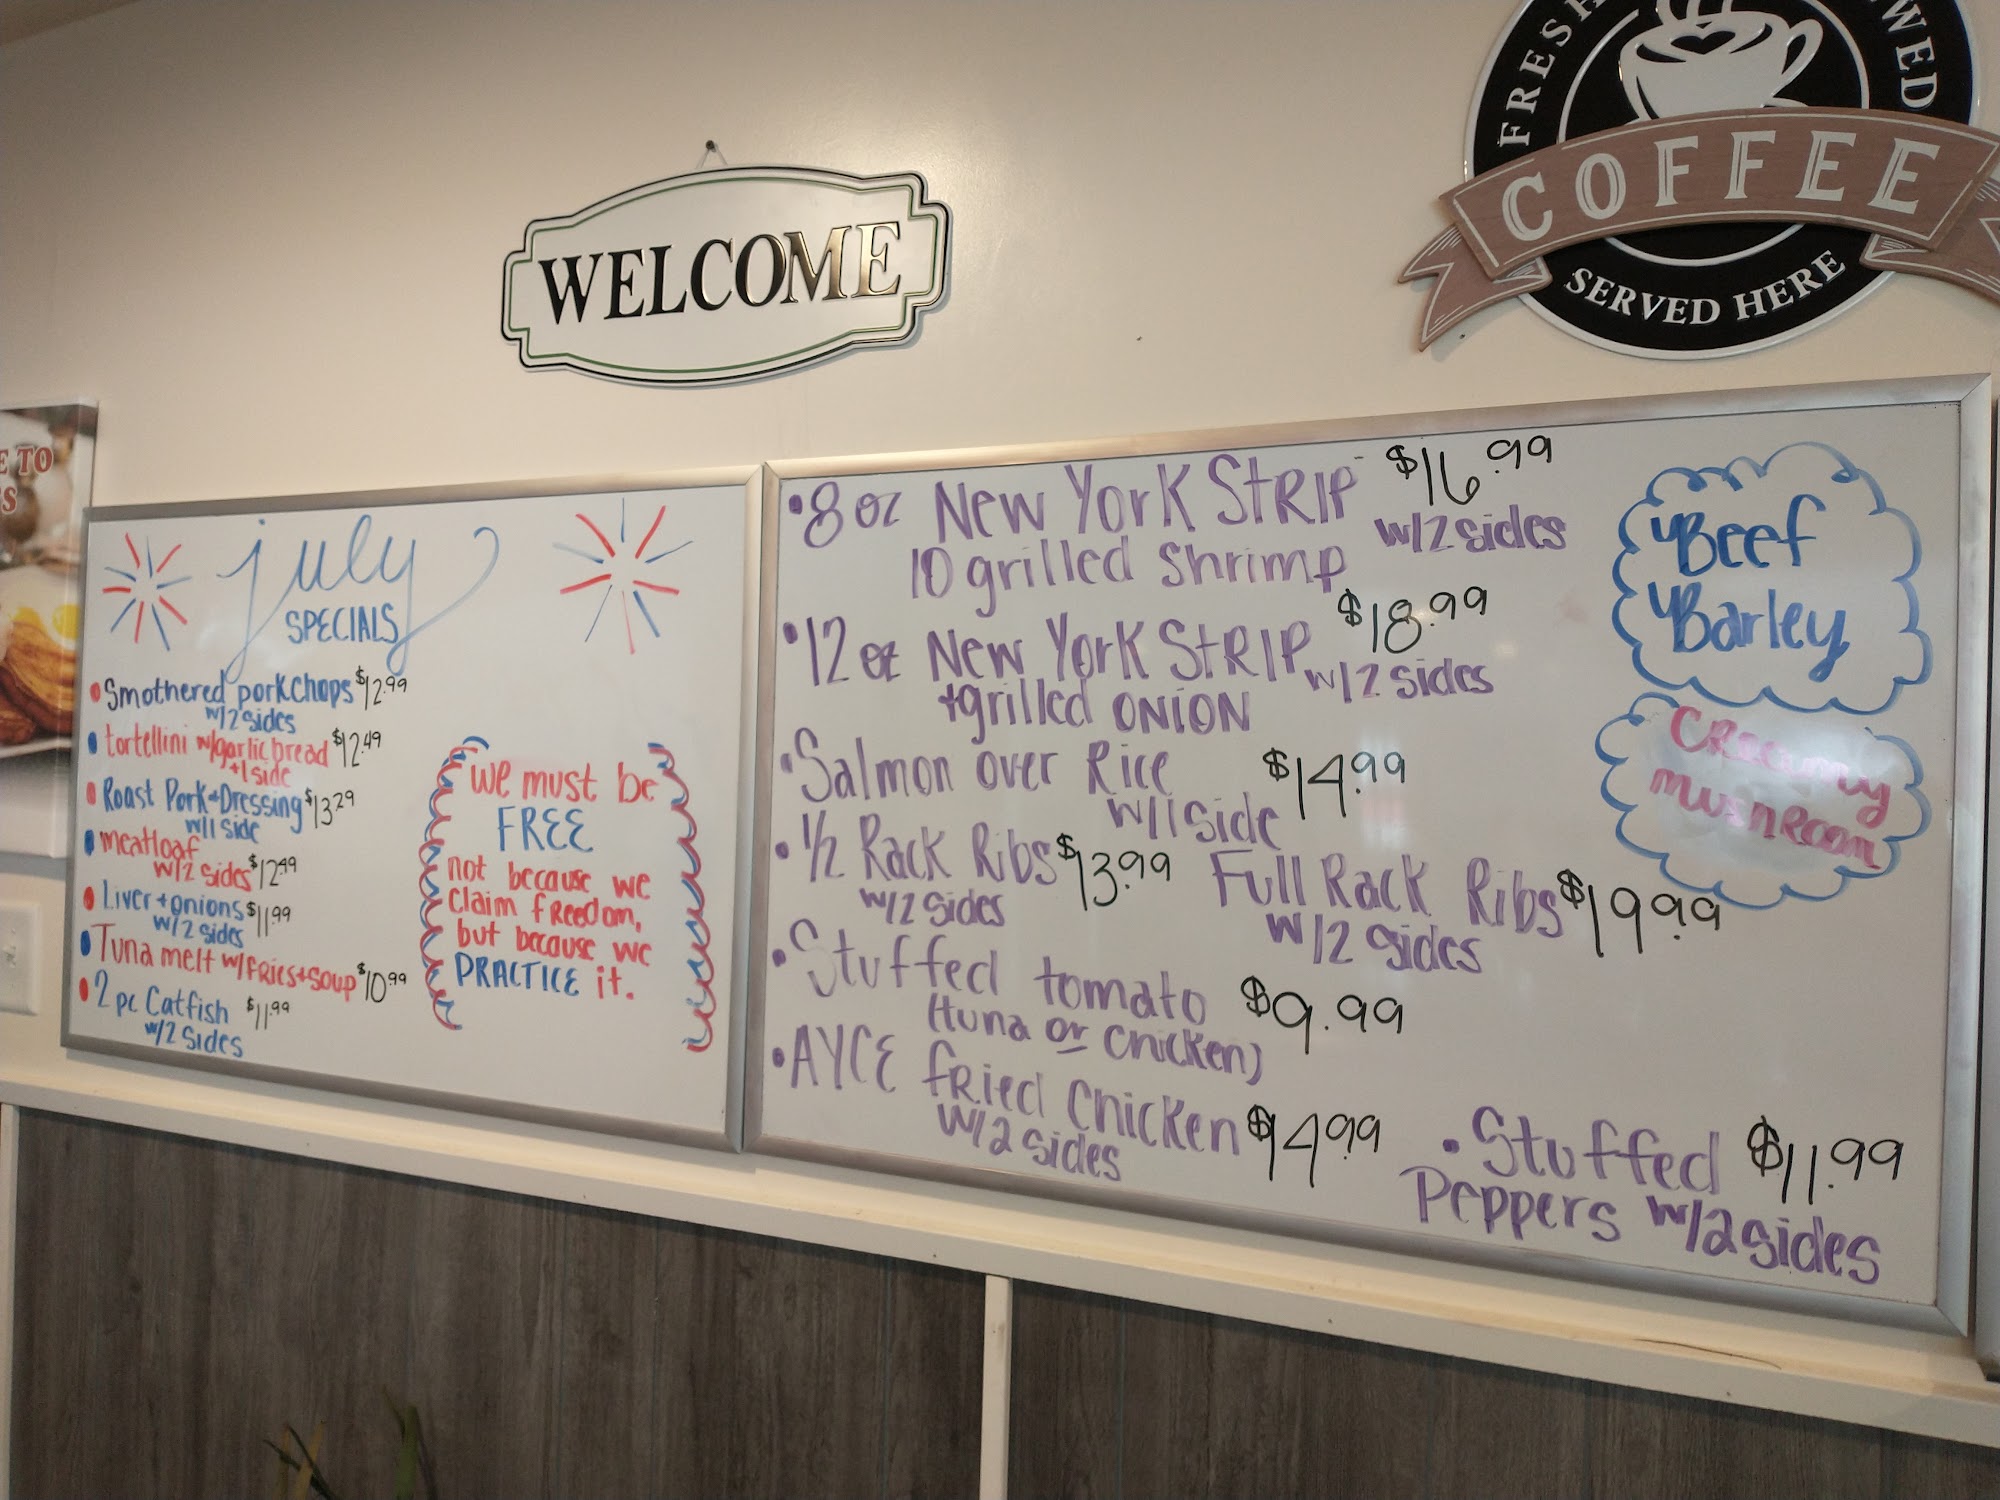 FRESH
COFFEE
SERVED HERE
WELCOME
E TO
S
july
SPECIALS
• Smothered porkchops $12.99
w/2 sides
• tortellini w/garlic bread $12.49
+1 side
• Roast Pork+Dressing $13.29
w/1 side
• meatloaf
w/2 sides $12.49
• Liver + onions $11.99
w/2 sides
• Tuna melt w/fries+soup $10.99
• 2 pc Catfish $11.99
w/2 sides
we must be
FREE
not because we
claim freedom,
but because we
PRACTICE it.
• 8 oz New York Strip $16.99
10 grilled shrimp w/2 sides
• 12 oz New York Strip $18.99
+grilled onion w/2 sides
• Salmon over Rice $14.99
w/1 side
• 1/2 Rack Ribs $13.99 Full Rack Ribs $19.99
w/2 sides w/2 sides
• Stuffed tomato $9.99
(tuna or chicken)
• AYCE fried chicken $14.99
w/2 sides
• Stuffed $11.99
Peppers w/2 sides
Beef
Barley
Creamy
mushroom